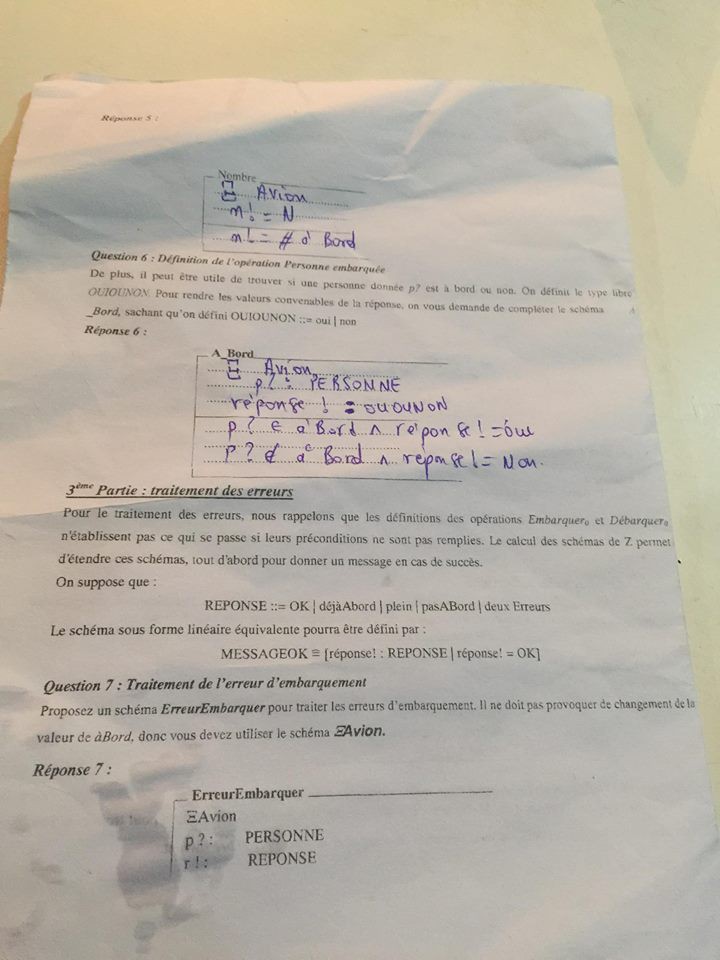 Réponse 5 :
Nombre
Ξ Avion
n! = N
n! = # à Bord
Question 6 : Définition de l'opération Personne embarquée
De plus, il peut être utile de trouver si une personne donnée p? est à bord ou non. On définit le type libre
OUIOUNON. Pour rendre les valeurs convenables de la réponse, on vous demande de compléter le schéma A
_Bord, sachant qu'on défini OUIOUNON ::= oui | non
Réponse 6 :
A_Bord
Ξ Avion
p? : PERSONNE
réponse ! : OUOUNON
p ? ∈ à Bord ∧ réponse! = óui
P ? ∉ à Bord ∧ reponse! = Non.
3ème Partie : traitement des erreurs
Pour le traitement des erreurs, nous rappelons que les définitions des opérations Embarquer₀ et Débarquer₀
n'établissent pas ce qui se passe si leurs préconditions ne sont pas remplies. Le calcul des schémas de Z permet
d'étendre ces schémas, tout d'abord pour donner un message en cas de succès.
On suppose que :
REPONSE ::= OK | déjàAbord | plein | pasABord | deux Erreurs
Le schéma sous forme linéaire équivalente pourra être défini par :
MESSAGEOK ≙ [réponse! : REPONSE | réponse! = OK]
Question 7 : Traitement de l'erreur d'embarquement
Proposez un schéma ErreurEmbarquer pour traiter les erreurs d'embarquement. Il ne doit pas provoquer de changement de la
valeur de àBord, donc vous devez utiliser le schéma ΞAvion.
Réponse 7 :
ErreurEmbarquer
ΞAvion
p ? : PERSONNE
r ! : REPONSE